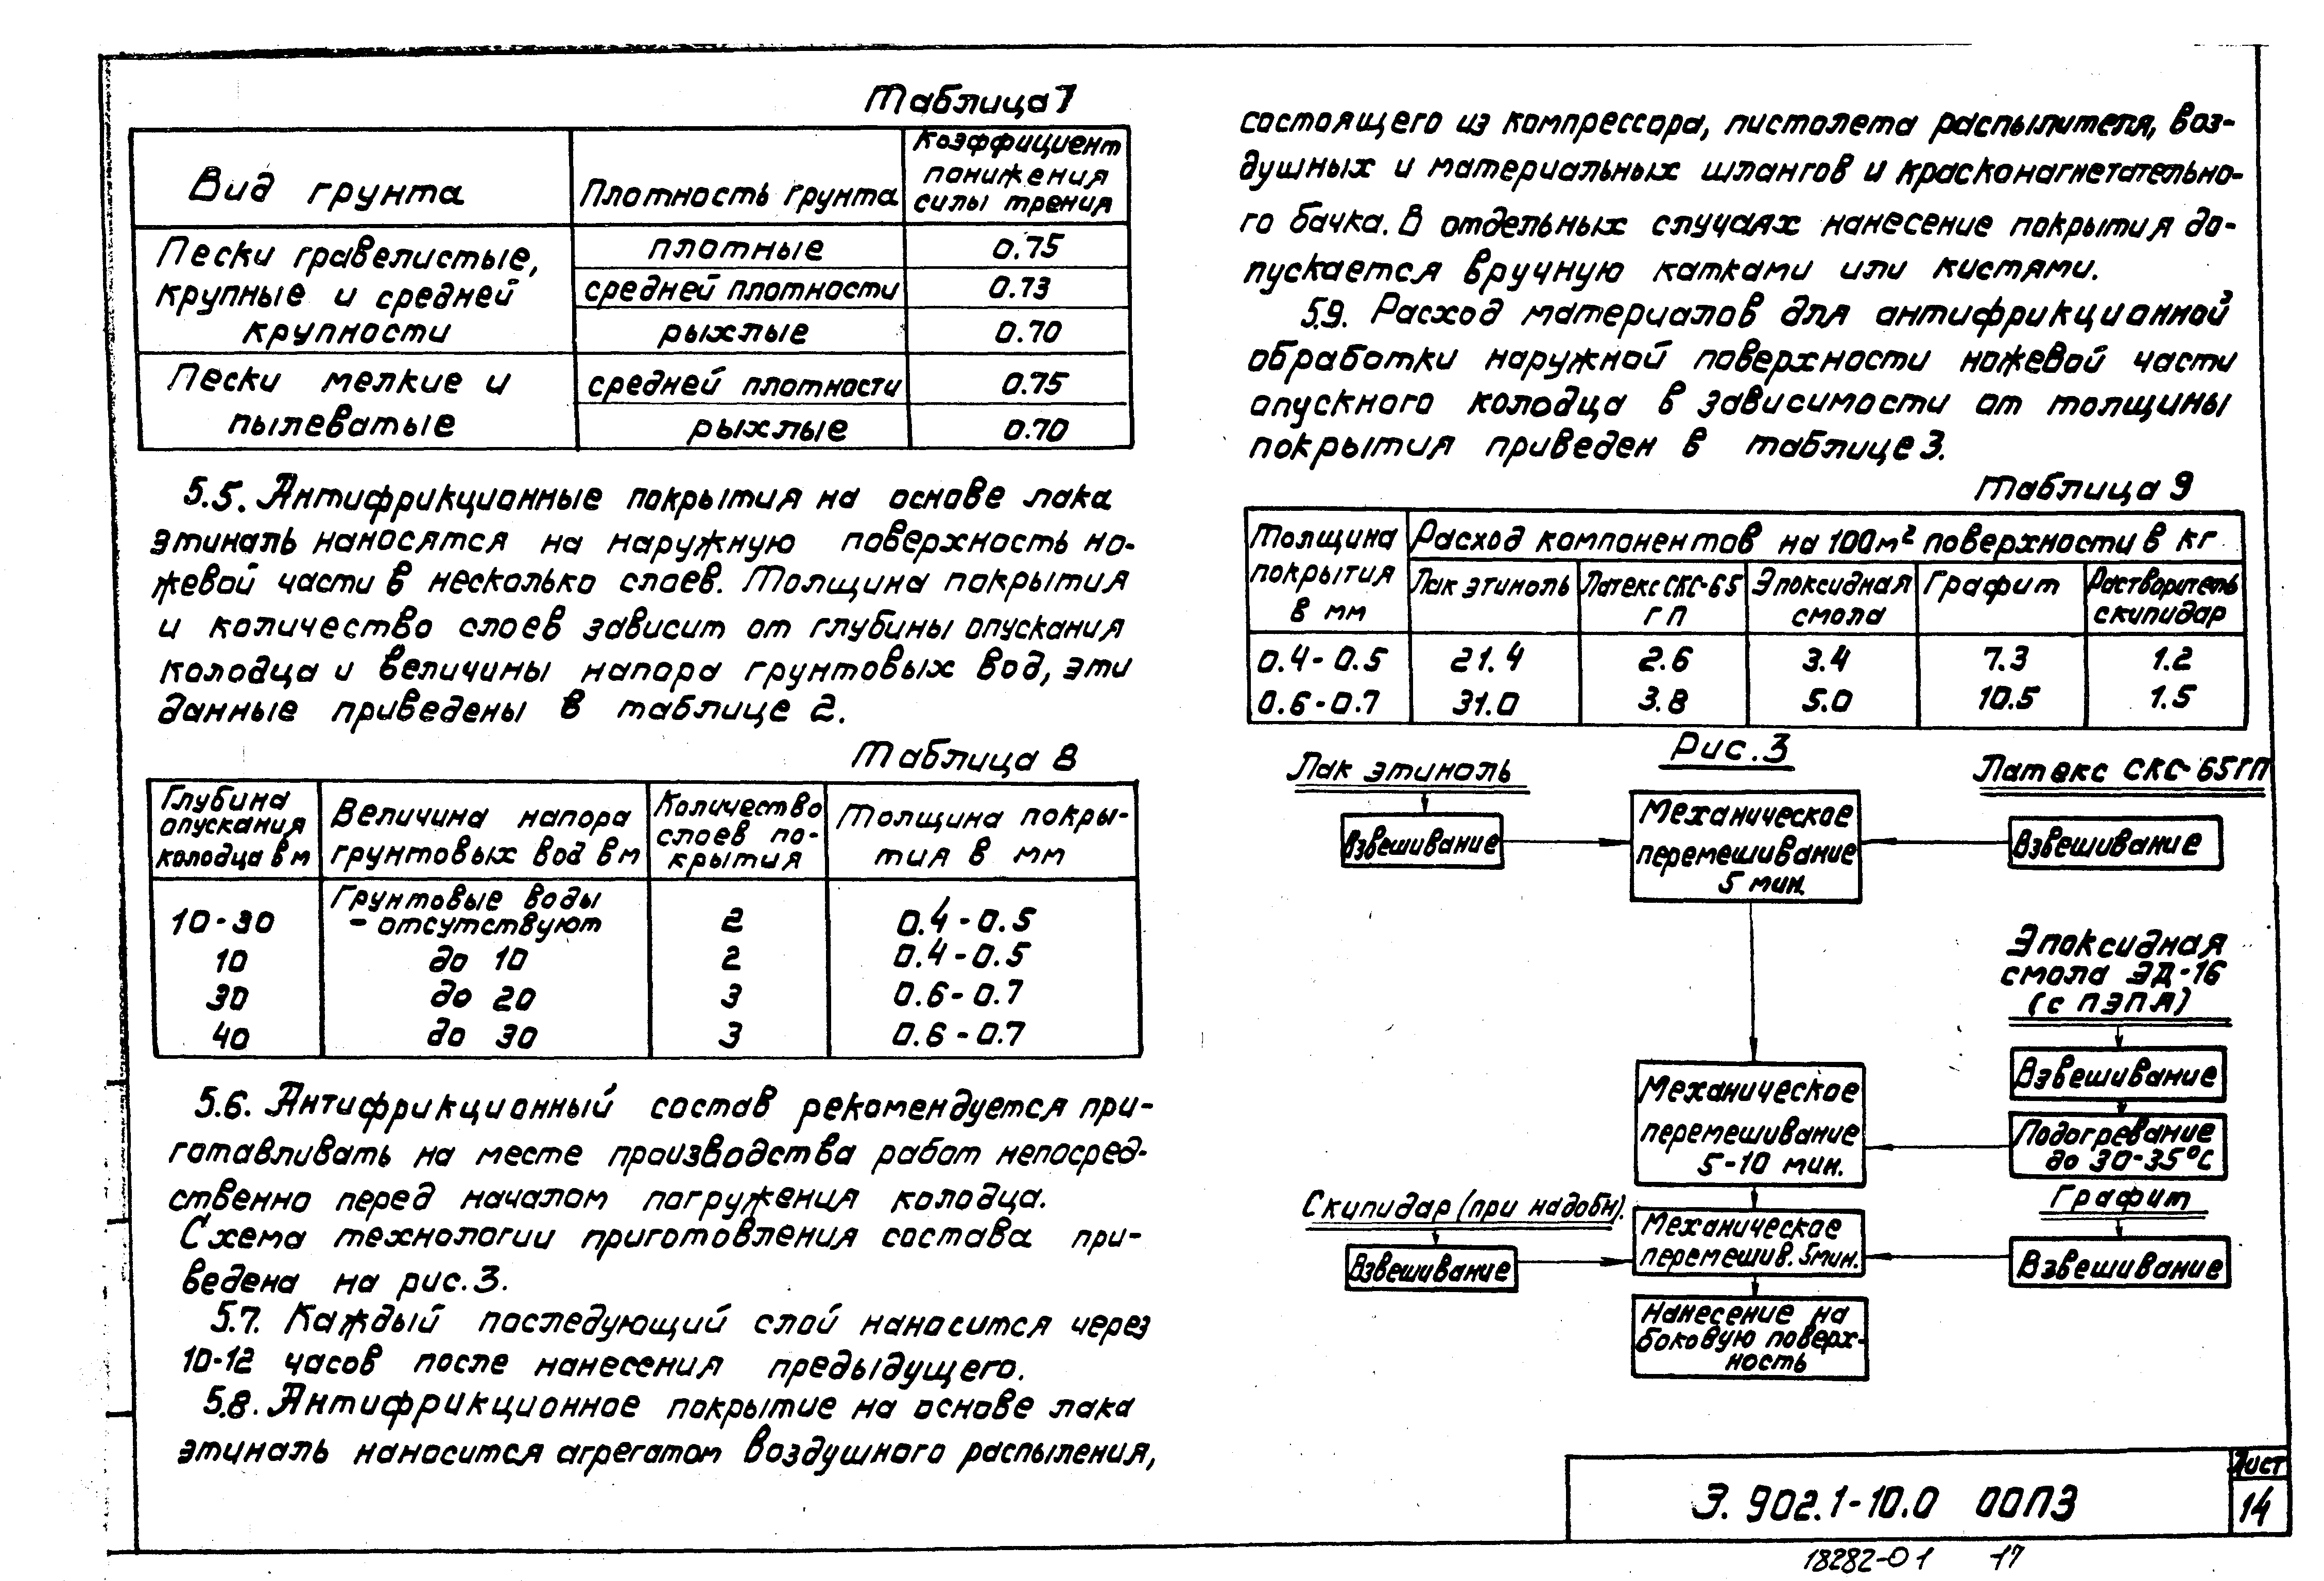 Таблица 7
Вид грунта
Плотность грунта
Коэффициент
понижения
силы трения
Пески гравелистые,
крупные и средней
крупности
плотные
0.75
средней плотности
0.73
рыхлые
0.70
Пески мелкие и
пылеватые
средней плотности
0.75
рыхлые
0.70
5.5. Антифрикционные покрытия на основе лака
этиналь наносятся на наружную поверхность но-
жевой части в несколько слоев. Толщина покрытия
и количество слоев зависит от глубины опускания
колодца и величины напора грунтовых вод, эти
данные приведены в таблице 2.
Таблица 8
Глубина
опускания
колодца в м
Величина напора
грунтовых вод в м
Количество
слоев по-
крытия
Толщина покры-
тия в мм
10-30
Грунтовые воды
- отсутствуют
2
0.4-0.5
10
до 10
2
0.4-0.5
30
до 20
3
0.6-0.7
40
до 30
3
0.6-0.7
5.6. Антифрикционный состав рекомендуется при-
готавливать на месте производства работ непосред-
ственно перед началом погружения колодца.
Схема технологии приготовления состава при-
ведена на рис. 3.
5.7. Каждый последующий слой наносится через
10-12 часов после нанесения предыдущего.
5.8. Антифрикционное покрытие на основе лака
этиналь наносится агрегатом воздушного распыления,
состоящего из компрессора, пистолета распылителя, воз-
душных и материальных шлангов и красконагнетательно-
го бачка. В отдельных случаях нанесение покрытия до-
пускается вручную катками или кистями.
5.9. Расход материалов для антифрикционной
обработки наружной поверхности ножевой части
опускного колодца в зависимости от толщины
покрытия приведен в таблице 3.
Таблица 9
Толщина
покрытия
в мм
Расход компонентов на 100м² поверхности в кг
Лак этиноль
Латекс СКС-65
ГП
Эпоксидная
смола
Графит
Растворитель
скипидар
0.4-0.5
21.4
2.6
3.4
7.3
1.2
0.6-0.7
31.0
3.8
5.0
10.5
1.5
Рис. 3
Лак этиноль
Латекс СКС-65ГП
Взвешивание
Механическое
перемешивание
5 мин.
Взвешивание
Эпоксидная
смола ЭД-16
(с ПЭПА)
Взвешивание
Механическое
перемешивание
5-10 мин.
Подогревание
до 30-35°С
Скипидар (при надобн).
Графит
Взвешивание
Механическое
перемешив. 5мин.
Взвешивание
Нанесение на
боковую поверх-
ность
З. 902.1-10.0 00ПЗ
Лист
14
18282-01 17